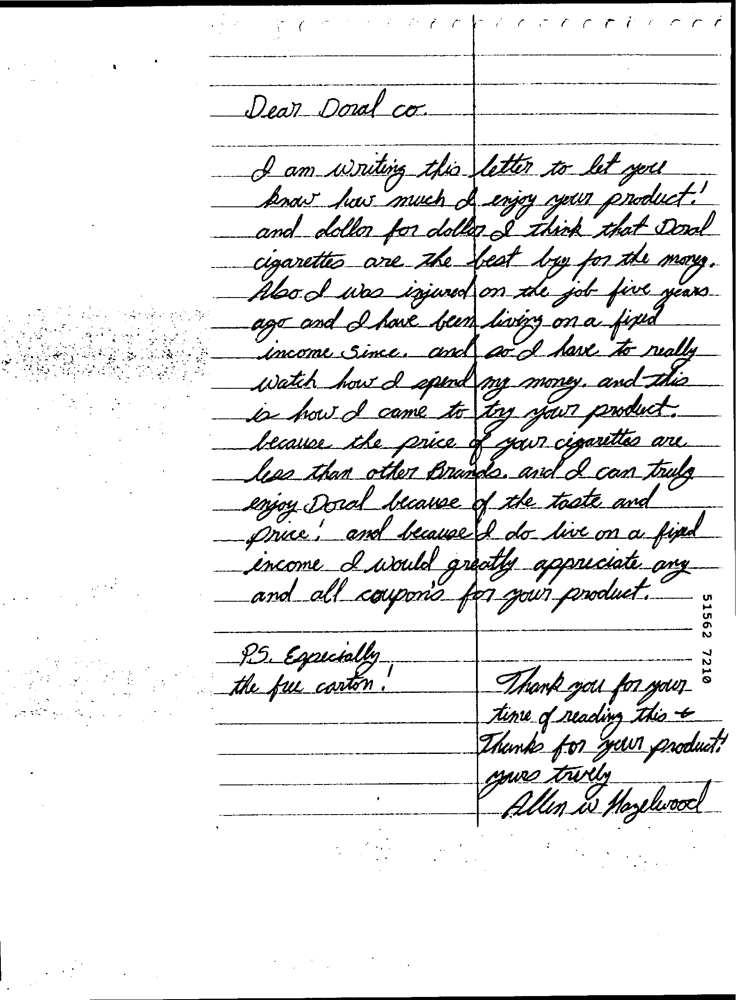 Dear Doral co.
I am writing this letter to let you
know how much I enjoy your product!
and dollar for dollar I think that Doral
cigarettes are the best buy for the money.
Also I was injured on the job five years
ago and I have been living on a fixed
income since. and so I have to really
watch how I spend my money. and this
is how I came to try your product.
because the price of your cigarettes are
less than other Brands. and I can truly
enjoy Doral because of the taste and
price! and because I do live on a fixed
income I would greatly appreciate any
and all coupon's for your product.
P.S. Especially
the free carton!
Thank you for your
time of reading this &
Thanks for your product!
yours truely
Allen W Hazelwood
51562 7210